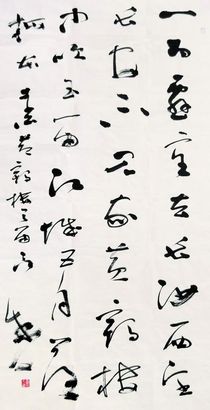 一為遷客去長沙西望
長安不見家黃鶴樓
中吹玉笛江城五月落
梅花 黃鶴樓